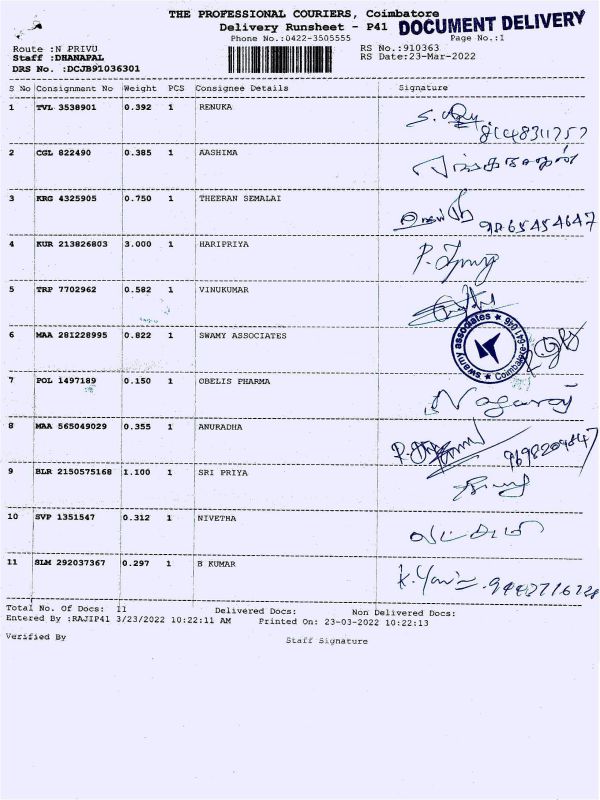 THE PROFESSIONAL COURIERS, Coimbatore
Delivery Runsheet - P41 DOCUMENT DELIVERY
Phone No.:0422-3505555 Page No.:1
Route :N PRIVU RS No.:910363
Staff :DHANAPAL RS Date:23-Mar-2022
DRS No. :DCJB91036301
S No Consignment No Weight PCS Consignee Details Signature
1 TVL 3538901 0.392 1 RENUKA
8148311757
2 CGL 822490 0.385 1 AASHIMA
3 KRG 4325905 0.750 1 THEERAN SEMALAI
9865454647
4 KUR 213826803 3.000 1 HARIPRIYA
5 TRP 7702962 0.582 1 VINUKUMAR
6 MAA 281228995 0.822 1 SWAMY ASSOCIATES
swamy associates ★ Coimbatore-641 046 ★
7 POL 1497189 0.150 1 OBELIS PHARMA
Nagaraj
8 MAA 565049029 0.355 1 ANURADHA
9 BLR 2150575168 1.100 1 SRI PRIYA
10 SVP 1351547 0.312 1 NIVETHA
11 SLM 292037367 0.297 1 B KUMAR
Total No. Of Docs: 11 Delivered Docs: Non Delivered Docs:
Entered By :RAJIP41 3/23/2022 10:22:11 AM Printed On: 23-03-2022 10:22:13
Verified By Staff Signature